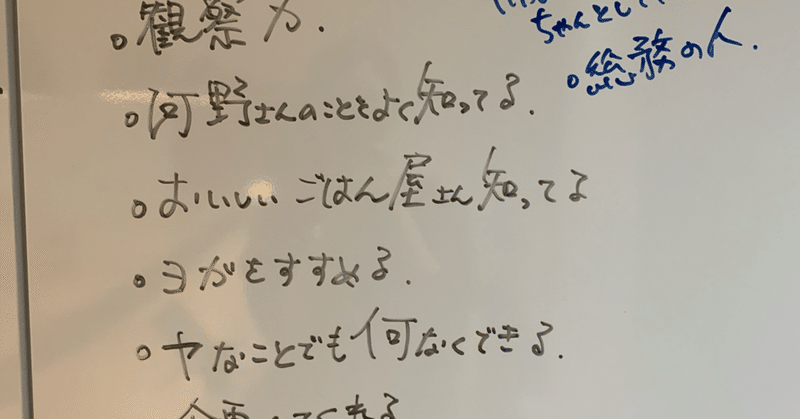 。観察力.
。河野さんのことをよく知ってる.
。おいしいごはん屋さん知ってる
。ヨガをすすめる.
。ヤなことでも何なくできる.
ちゃんとして
。総務の人.